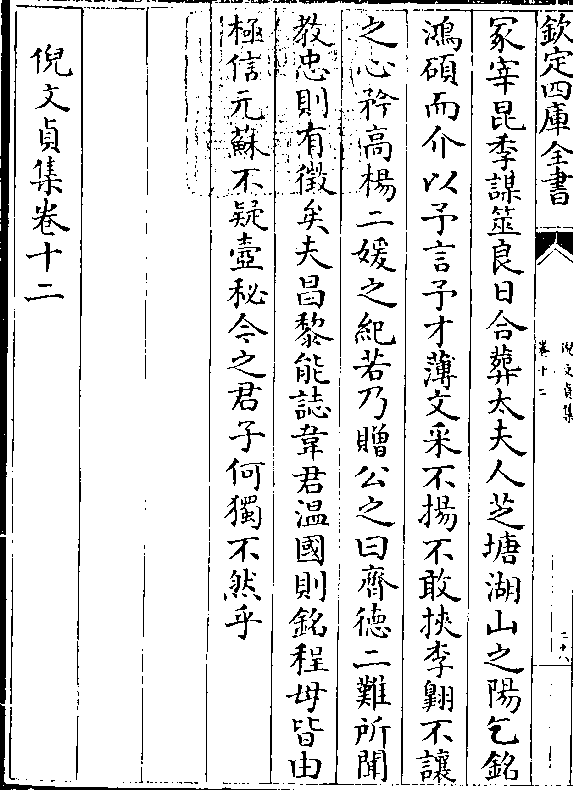 欽定四庫全書
倪文貞集
卷十二
二十八
冢宰昆季謀筮良日合葬太夫人芝塘湖山之陽乞銘
鴻碩而介以予言予才薄文采不揚不敢挾李翺不讓
之心矜高楊二媛之紀若乃贈公之曰齊德二難所聞
教忠則有徵矣夫昌黎能誌韋君溫國則銘程母皆由
極信元蘇不疑壼秘今之君子何獨不然乎
倪文貞集卷十二